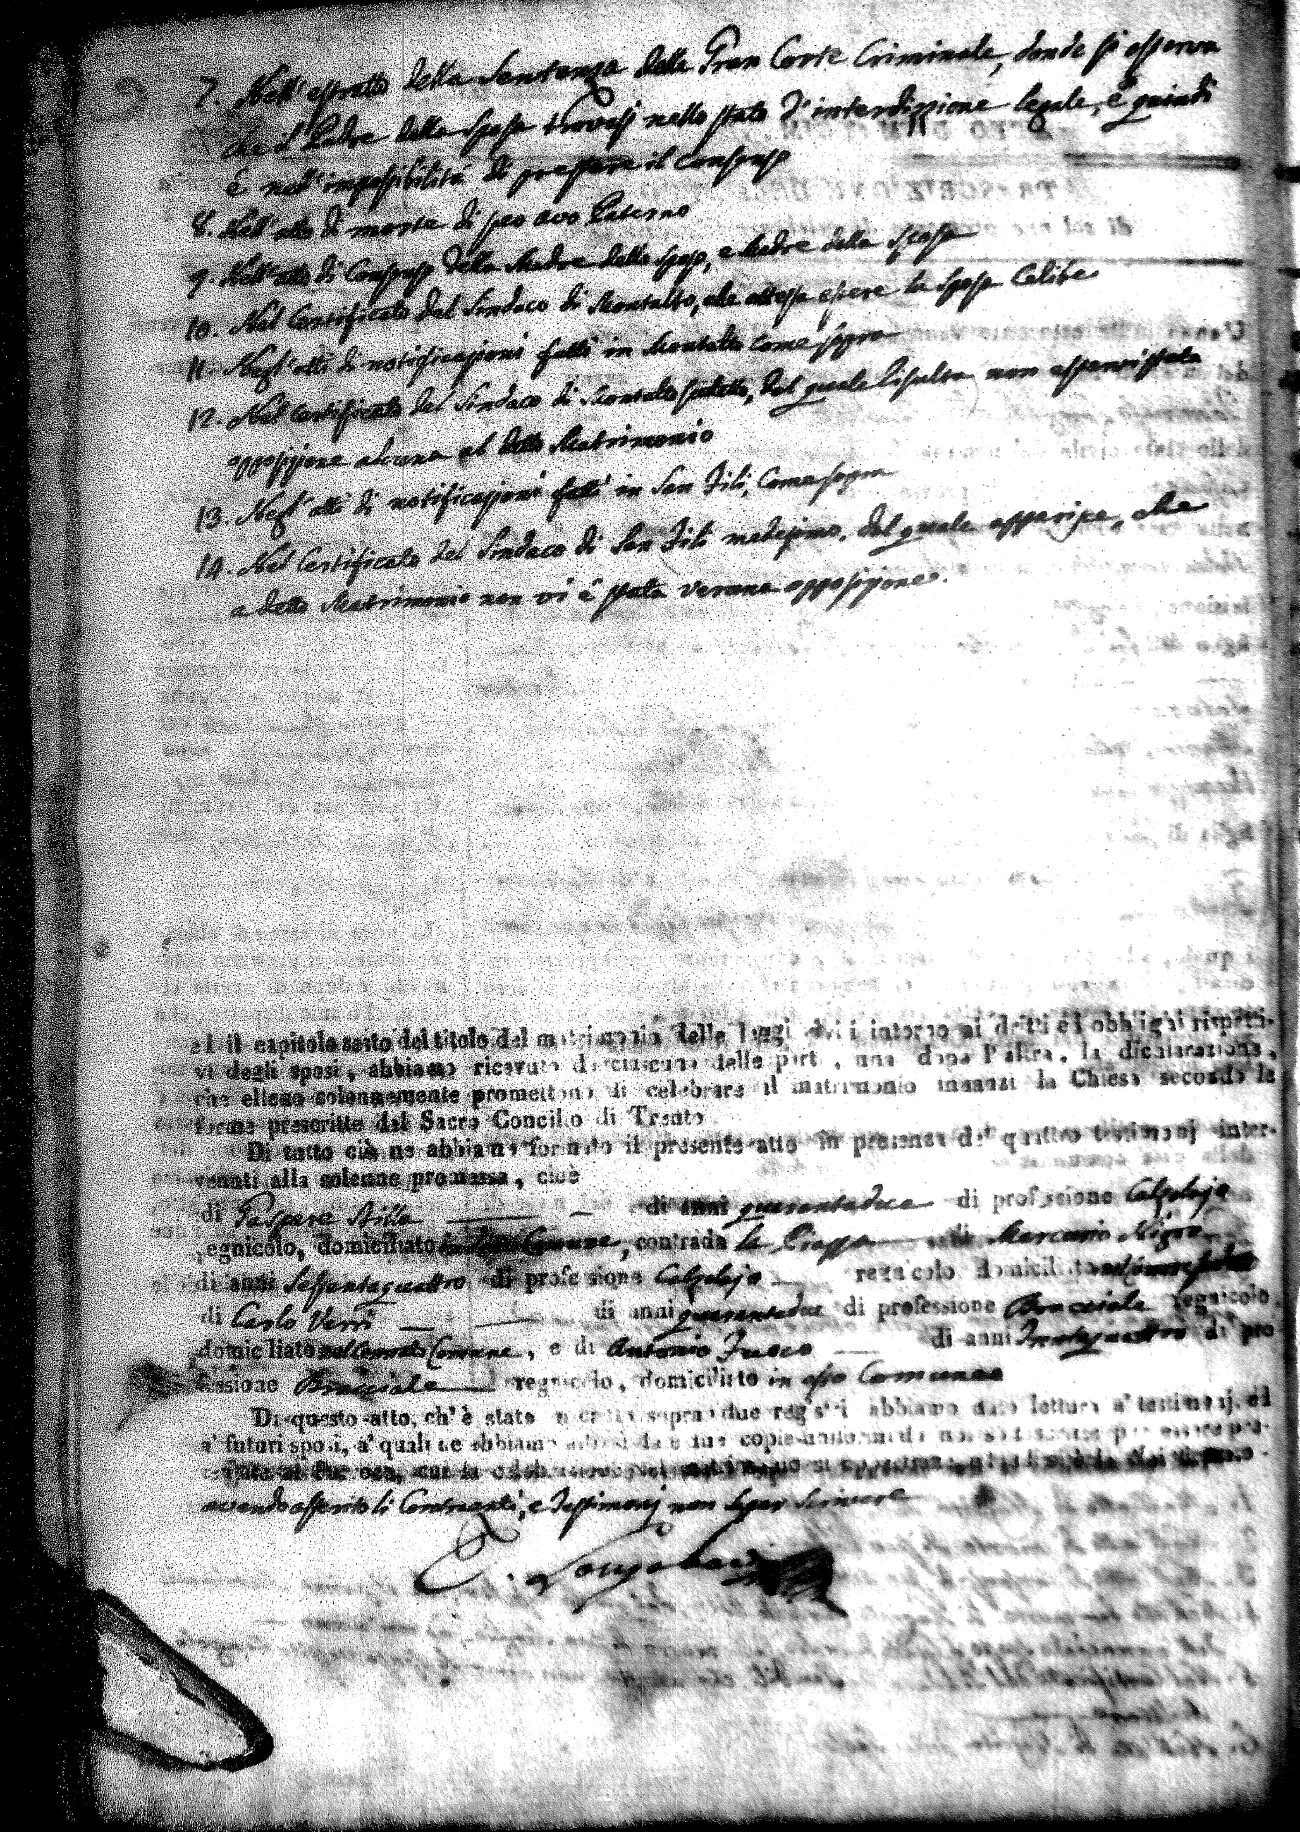 7. Nell'estratto della Sentenza della Gran Corte Criminale, donde si osserva
che il Padre della sposa trovasi nello stato d'interdizione legale, e quindi
è nell'impossibilità di prestare il consenso
8. Nell'atto di morte di suo avo Paterno
9. Nell'atto di Consenso della Madre dello sposo, e Madre della sposa
10. Nel Certificato del Sindaco di Montalto, che attesta essere la sposa Celibe
11. Negl'atti di notificazioni fatti in Montalto come sopra
12. Nel Certificato del Sindaco di Montalto sudetto, dal quale risulta non esservi stata
opposizione alcuna al detto Matrimonio
13. Negl'atti di notificazioni fatti in San Fili, come sopra
14. Nel Certificato del Sindaco di San Fili medesimo, dal quale apparisce, che
a detto Matrimonio non vi è stata veruna opposizione.
ed il capitolo sesto del titolo del matrimonio delle leggi civili intorno ai dritti ed obblighi rispetti-
vi degli sposi, abbiamo ricevuto da ciascuna delle parti, una dopo l'altra, la dichiarazione,
che elleno solennemente promettono di celebrare il matrimonio innanzi la Chiesa secondo le
forme prescritte dal Sacro Concilio di Trento
Di tutto ciò ne abbiamo formato il presente atto in presenza de' quattro testimonj inter-
venuti alla solenne promessa, cioè
di Gaspare di anni quarantadue di professione Calzolajo
regnicolo, domiciliato Comune, contrada la Piazza di Mercurio Nigro
di anni Sessantaquattro di professione Calzolajo regnicolo domiciliato
di Carlo Verri di anni quarantadue di professione Bracciale regnicolo
domiciliato Comune, e di Antonio Fusco di anni Trentaquattro di pro
fessione Bracciale regnicolo, domiciliato in esso Comune
Di questo atto, ch'è stato inscritto sopra i due registri abbiamo dato lettura a' testimonj, ed
a' futuri sposi, a' quali ne abbiamo altresì date due copie da noi sottoscritte per essere pre-
sentate al Parroco, cui la celebrazione del matrimonio si appartiene,
avendo asserito li Contraenti, e Testimonj non saper scrivere